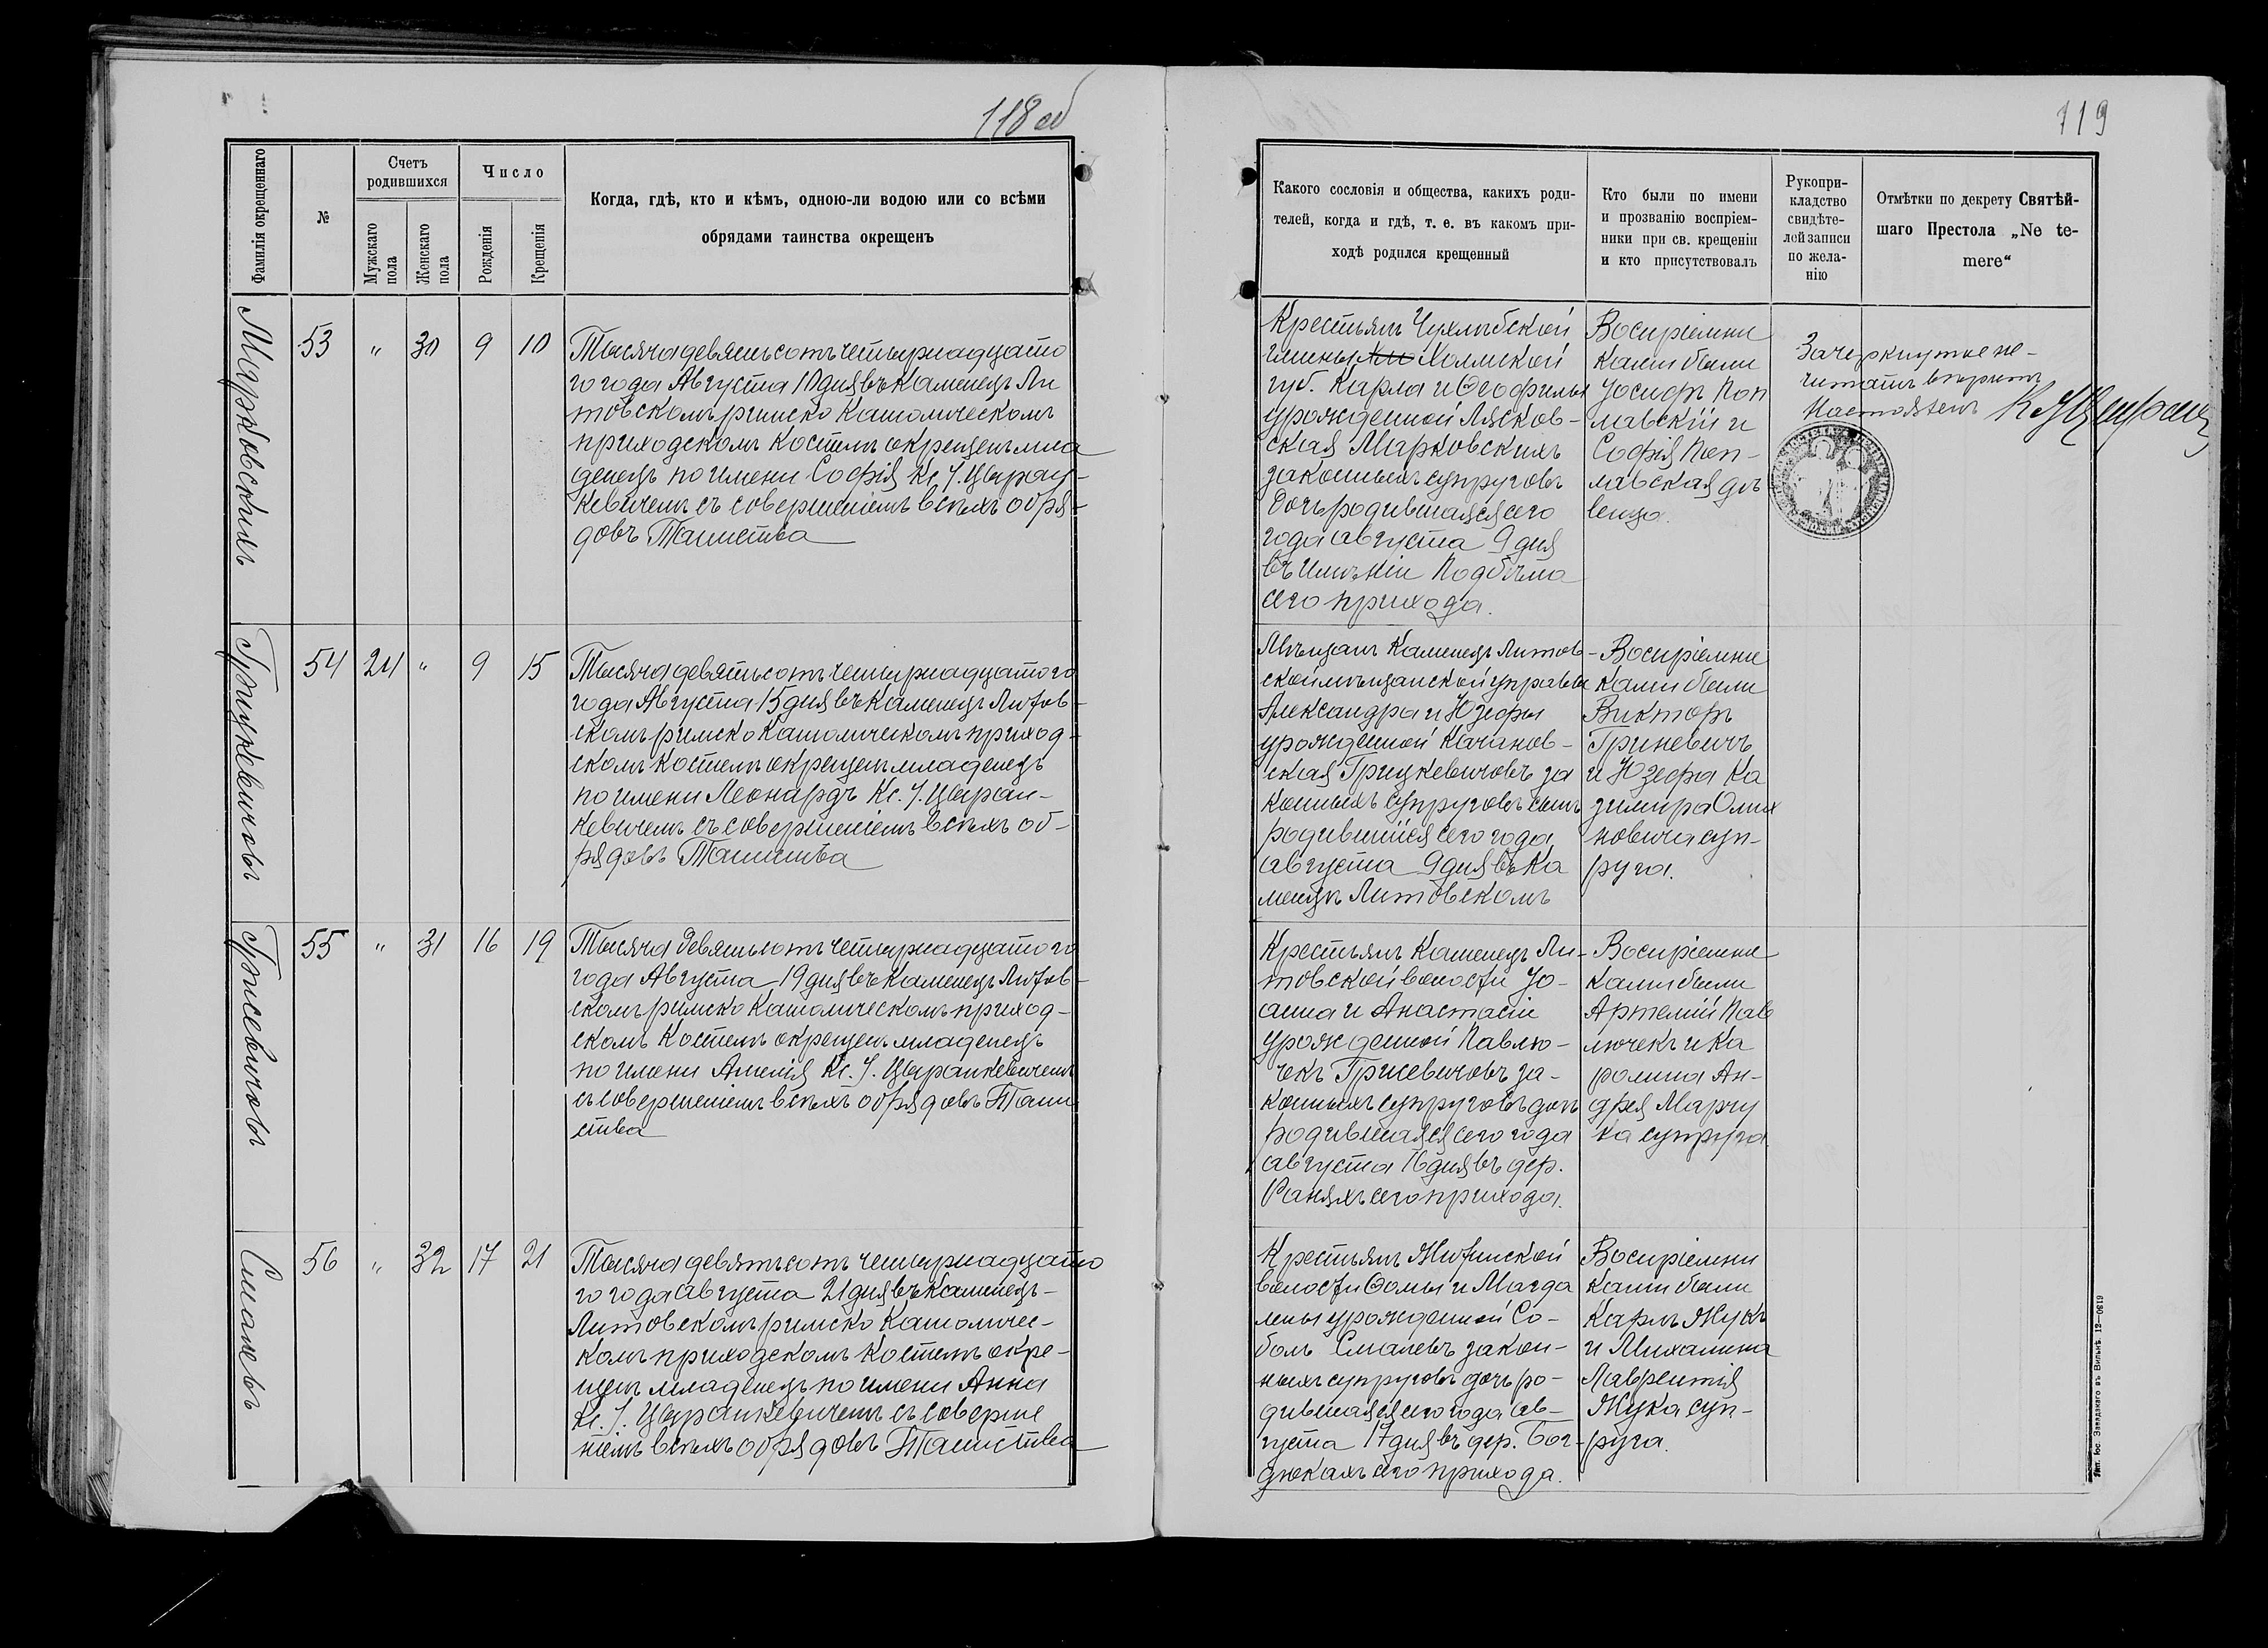 118 об
Фамилія окрещеннаго
№
Счетъ
родившихся
Мужскаго
пола
Женскаго
пола
Число
Рожденія
Крещенія
Когда, гдѣ, кто и кѣмъ, одною-ли водою или со всѣми
обрядами таинства окрещенъ
Марковскихъ
53 " 30 9 10
Тысяча девятьсотъ четырнадцато
го года Августа 10 дня въ Каменецъ Ли
товскомъ римско католическомъ
приходскомъ костелѣ окрещенъ мла
денецъ по имени Софія Кс. І. Цыран-
кевичемъ съ совершеніемъ всѣхъ обря-
довъ Таинства
Грицкевичовъ
54 24 " 9 15
Тысяча девятьсотъ четырнадцатого
года Августа 15 дня въ Каменецъ Литов-
скомъ римско католическомъ приход-
скомъ костелѣ окрещенъ младенецъ
по имени Леонардъ Кс. І. Цыран-
кевичемъ съ совершеніемъ всѣхъ об-
рядовъ Таинства
Гржевичовъ
55 " 31 16 19
Тысяча девятьсотъ четырнадцатого
года Августа 19 дня въ Каменецъ Литов-
скомъ римско католическомъ приход-
скомъ костелѣ окрещенъ младенецъ
по имени Амелія Кс. І. Цыранкевичемъ
съ совершеніемъ всѣхъ обрядовъ Таин
ства
Смалевъ
56 " 32 17 21
Тысяча девятьсотъ четырнадцато
го года августа 21 дня въ Каменецъ-
Литовскомъ римско католичес-
комъ приходскомъ костелѣ окре-
щенъ младенецъ по имени Анна
Кс. І. Цыранкевичемъ съ соверше
ніемъ всѣхъ обрядовъ Таинства
119
Какого сословія и общества, какихъ роди-
телей, когда и гдѣ, т. е. въ какомъ при-
ходѣ родился крещенный
Кто были по имени
и прозванію воспріем-
ники при св. крещеніи
и кто присутствовалъ
Рукопри-
кладство
свидѣте-
лей записи
по жела-
нію
Отмѣтки по декрету Святѣй-
шаго Престола „Ne te-
mere“
Крестьянъ
гмины Холмской
губ. Карла и Ѳеофилы
урожденной Лясков-
ская Марковскихъ
законныхъ супруговъ
дочь родившаяся сего
года августа 9 дня
въ имѣніи Подбѣла
сего прихода.
Воспріемни
ками были
Іосифъ Поп
лавскій и
Софія Поп-
лавская дѣ
вица.
Зачеркнутое не
читать вѣрить
Настоятель
Мѣщанъ Каменецъ Литов-
ской мѣщанской управы
Александра и Юзефы
урожденной Качанов-
ская Грицкевичовъ за
конныхъ супруговъ сынъ
родившійся сего года
августа 9 дня въ Ка
менцѣ Литовскомъ
Воспріемни
ками были
Викторъ
Гриневичъ
и Юзефа Ка
зимира Олих
новича суп-
руга.
Крестьянъ Каменецъ Ли-
товской волости Іо-
анна и Анастасіи
урожденной Павлю-
чекъ Гржевичовъ за-
конныхъ супруговъ дочь
родившаяся сего года
августа 16 дня въ дер.
сего прихода.
Воспріемни
ками были
Артемій Пав
лючекъ и Ка
ролина Ан-
дрея Марчу
ка супруга.
Крестьянъ
волости Ѳомы и Магда
лены урожденной Со-
боль Смалевъ закон-
ныхъ супруговъ дочь ро-
дившаяся сего года ав-
густа 17 дня въ дер. Бог-
дюкахъ сего прихода.
Воспріемни
ками были
Карлъ Жукъ
и Михалина
Лаврентія
Жука суп-
руга.
Тип. Іос. Завадзкаго въ Вильнѣ. 12—0619